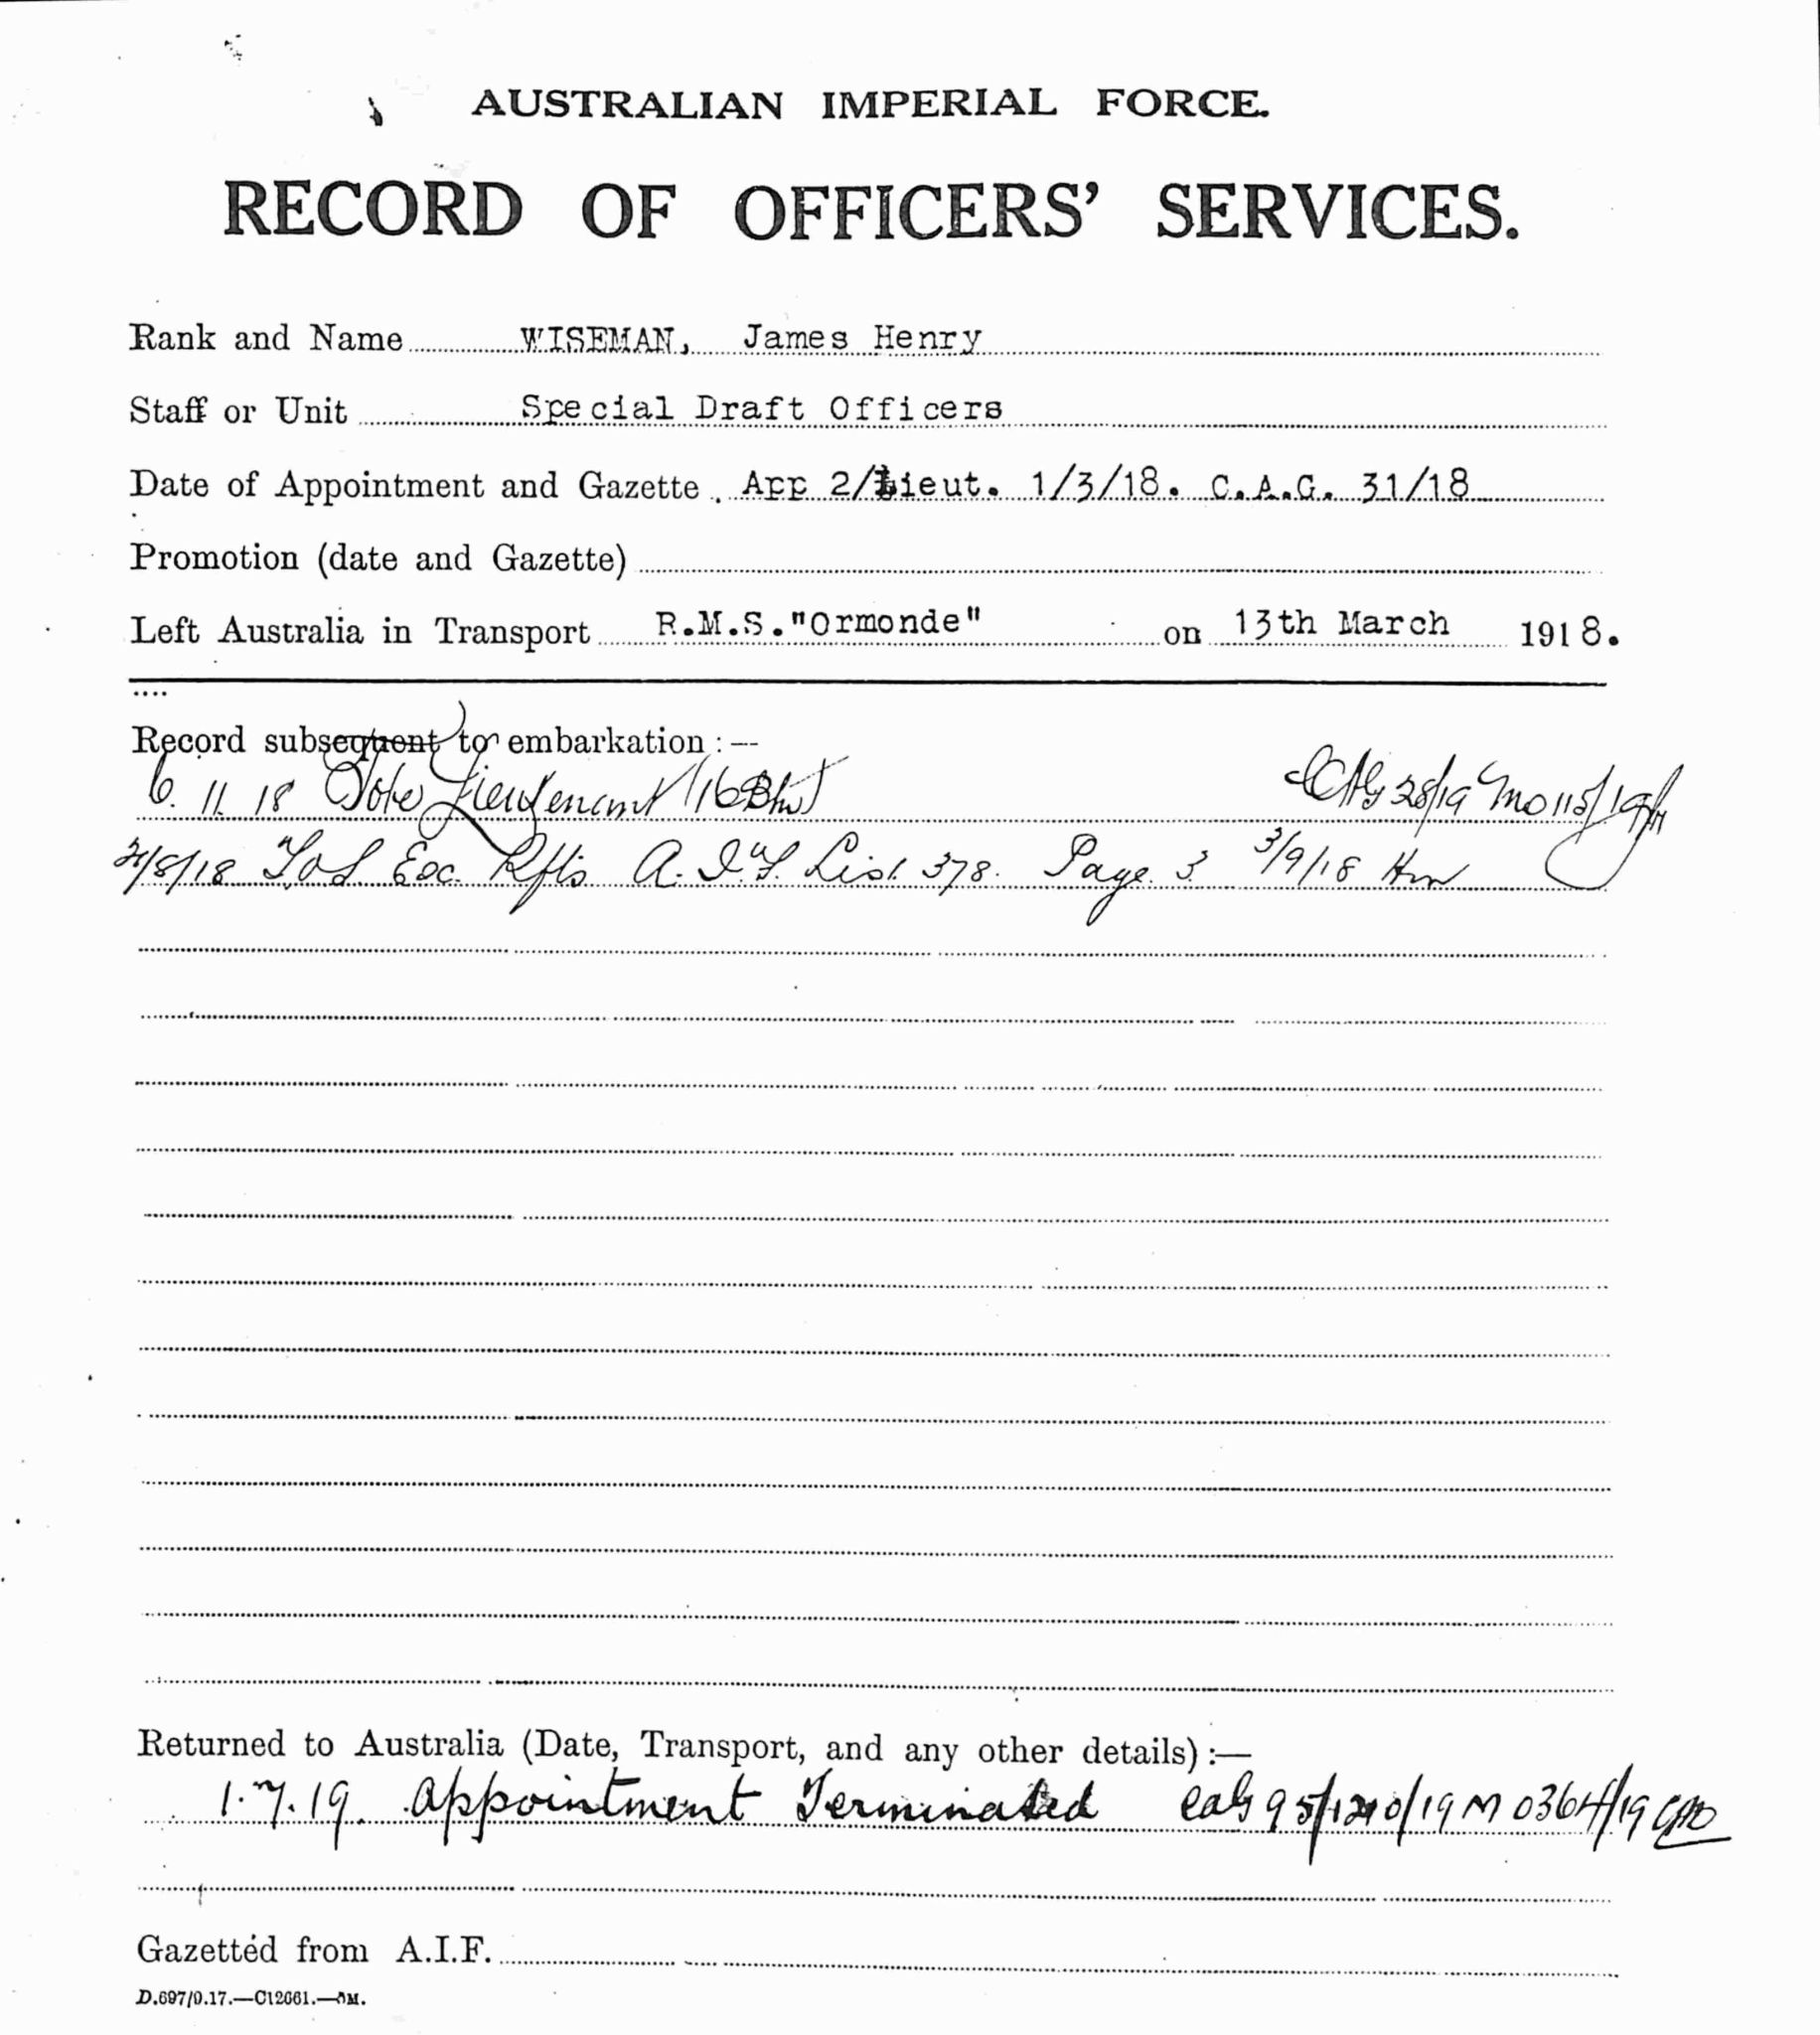 AUSTRALIAN IMPERIAL FORCE.
RECORD OF OFFICERS' SERVICES.
Rank and Name WISEMAN, James Henry
Staff or Unit Special Draft Officers
Date of Appointment and Gazette App 2/Lieut. 1/3/18. C.A.G. 31/18
Promotion (date and Gazette)
Left Australia in Transport R.M.S."Ormonde" on 13th March 1918.
Record subsequent to embarkation :—
6. 11. 18 To be Lieutenant (16 Btn) CAG 28/19 MO 115/19
/8/18 TOS Rfts A.I.F. List 378. Page 3 3/9/18
Returned to Australia (Date, Transport, and any other details) :—
1.7.19. Appointment Terminated CAG 95/ MO 364/19
Gazetted from A.I.F.
D.697/9.17.—C12661.—